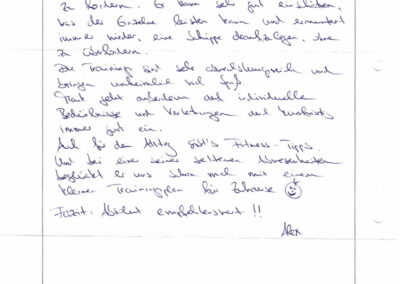 zu fordern. Er kann sehr gut einschätzen,
was der Einzelne leisten kann und ermuntert
immer wieder, eine Schippe draufzulegen, ohne
zu überfordern.
Die Trainings sind sehr abwechslungsreich und
bringen unheimlich viel Spaß.
geht außerdem auf individuelle
Bedürfnisse und Verletzungen
immer gut ein.
Auch für den Alltag gibt's Fitness-Tipps.
Und bei einer seiner seltenen Abwesenheiten
beglückt er uns schon mal mit einem
kleinen Trainingsplan für Zuhause
Fazit: Absolut empfehlenswert !!
Alex